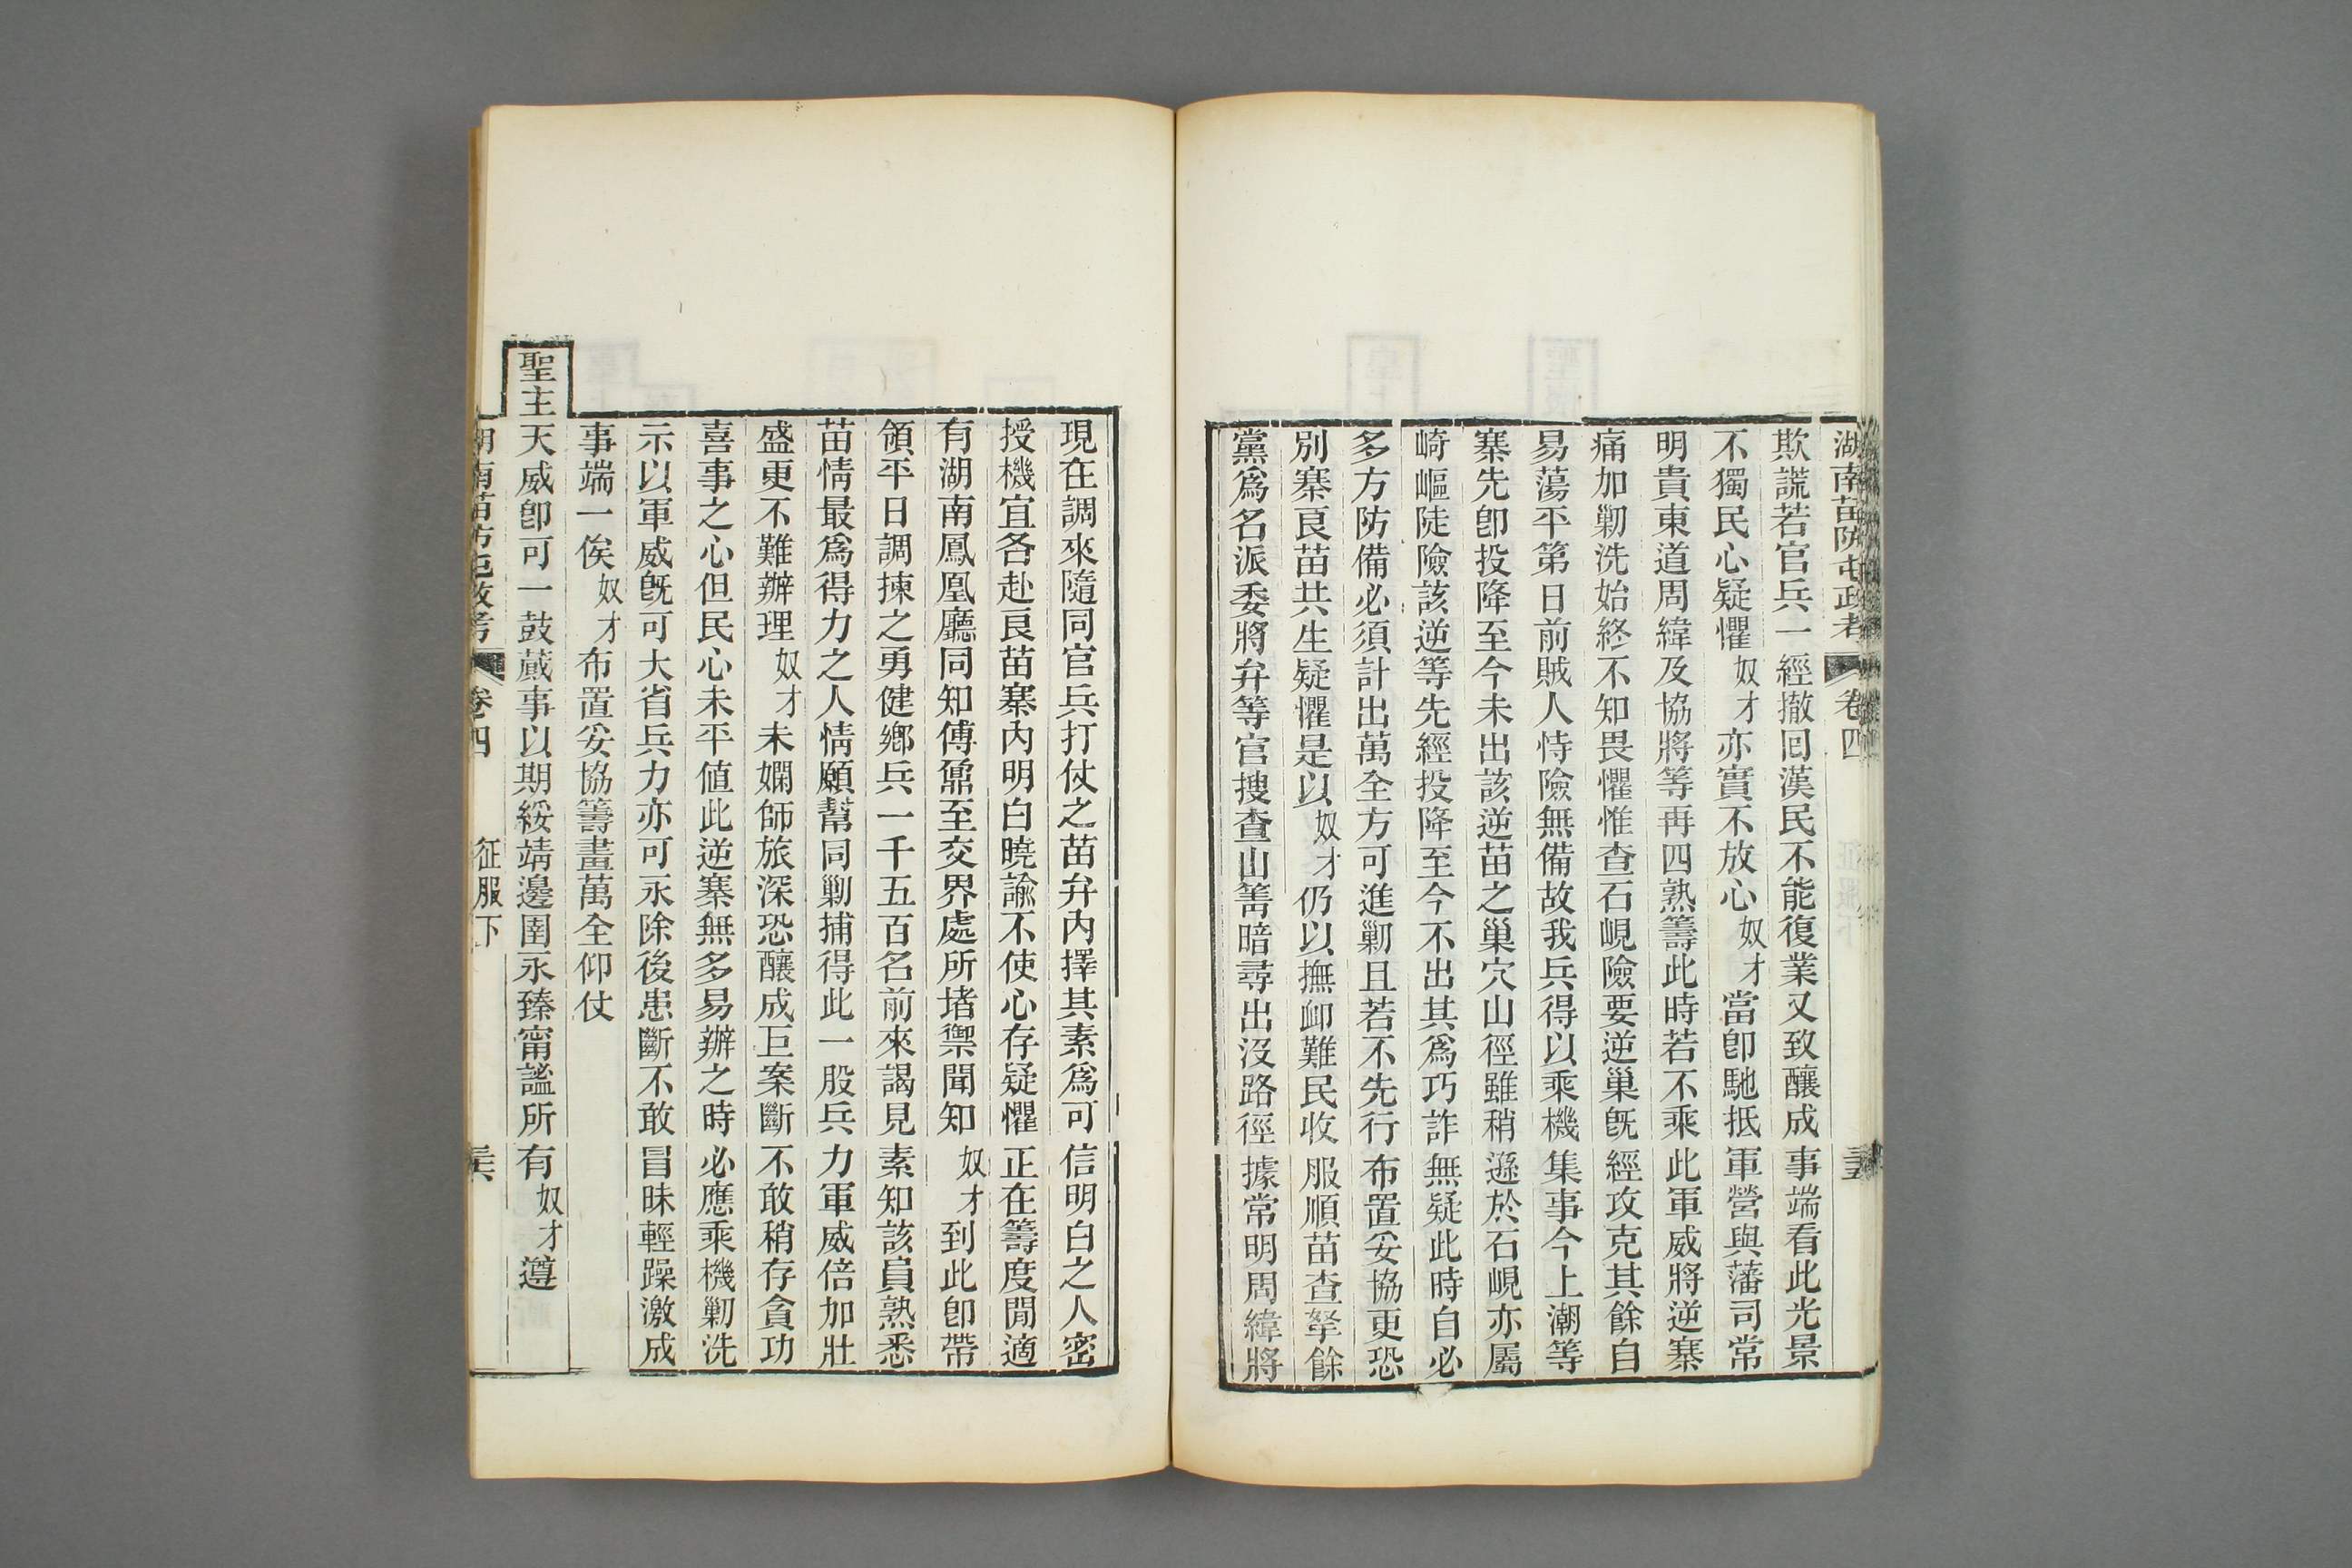 湖南苗防屯政考 卷四
欺謊若官兵一經撤囘漢民不能復業又致釀成事端看此光景
不獨民心疑懼奴才亦實不放心奴才當卽馳抵軍營與藩司常
明貴東道周緯及協將等再四熟籌此時若不乘此軍威將逆寨
痛加勦洗始終不知畏懼惟查石峴險要逆巢旣經攻克其餘自
易蕩平第日前賊人恃險無備故我兵得以乘機集事今上潮等
寨先卽投降至今未出該逆苗之巢穴山徑雖稍遜於石峴亦屬
崎嶇陡險該逆等先經投降至今不出其爲巧詐無疑此時自必
多方防備必須計出萬全方可進勦且若不先行布置妥協更恐
別寨良苗共生疑懼是以奴才仍以撫卹難民收服順苗查拏餘
黨爲名派委將弁等官搜查山箐暗尋出沒路徑據常明周緯將
現在調來隨同官兵打仗之苗弁內擇其素爲可信明白之人密
授機宜各赴良苗寨內明白曉諭不使心存疑懼正在籌度閒適
有湖南鳳凰廳同知傅鼐至交界處所堵禦聞知奴才到此卽帶
領平日調揀之勇健鄉兵一千五百名前來謁見素知該員熟悉
苗情最爲得力之人情願幫同勦捕得此一股兵力軍威倍加壯
盛更不難辦理奴才未嫻師旅深恐釀成巨案斷不敢稍存貪功
喜事之心但民心未平値此逆寨無多易辦之時必應乘機勦洗
示以軍威旣可大省兵力亦可永除後患斷不敢冒昧輕躁激成
事端一俟奴才布置妥協籌畫萬全仰仗
聖主天威卽可一鼓蕆事以期綏靖邊圉永臻甯謐所有奴才遵
湖南苗防屯政考 卷四 征服下